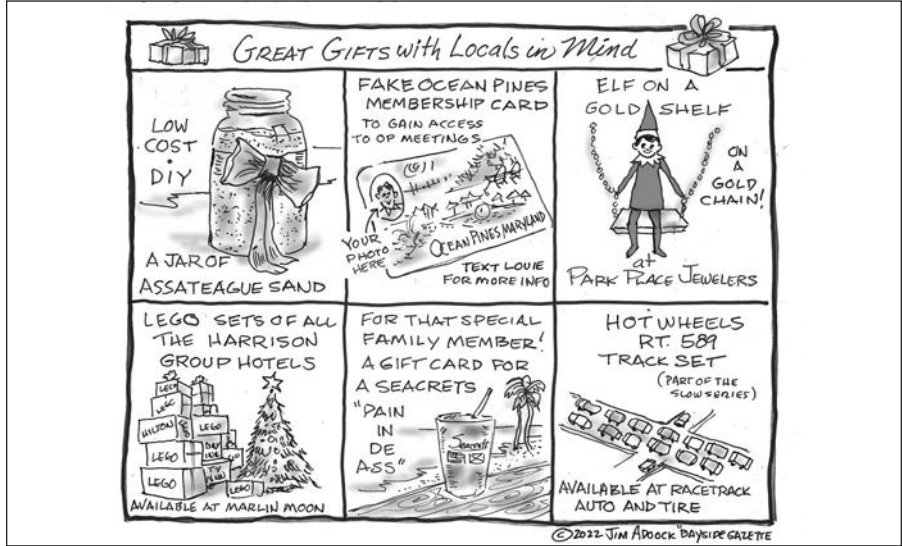 GREAT GIFTS with LOCALS in MIND
LOW
COST
DIY
A JAR OF
ASSATEAGUE SAND
FAKE OCEAN PINES
MEMBERSHIP CARD
TO GAIN ACCESS
TO OP MEETINGS
YOUR
PHOTO
HERE
OCEAN PINES MARYLAND
TEXT LOUIE
FOR MORE INFO
ELF ON A
GOLD SHELF
ON
A
GOLD
CHAIN!
at
PARK PLACE JEWELERS
LEGO SETS OF ALL
THE HARRISON
GROUP HOTELS
LEGO
LEGO
HILTON
LEGO
LEGO
LEGO
LEGO
AVAILABLE AT MARLIN MOON
FOR THAT SPECIAL
FAMILY MEMBER!
A GIFT CARD FOR
A SEACRETS
"PAIN
IN
DE
ASS"
Seacrets
HOT WHEELS
RT. 589
TRACK SET
(PART OF THE
SLOW SERIES)
AVAILABLE AT RACETRACK
AUTO AND TIRE
©2022 JIM ADCOCK "BAYSIDE GAZETTE